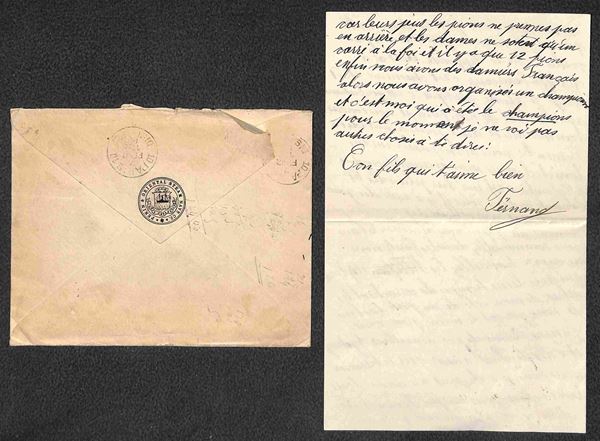 PENIN & ORIENTAL STEAM NAV. CO.
car leurs jeus les pions ne prenes pas
en arrière, et les dames ne sotent qu'un
carré à la foi et il y a que 12 pions
enfin nous avons des damiers Français
alors nous avons organisés un champions
et c'est moi qui à étés le champions
pour le moment je ne voi pas
autres choses à te dire:
Ton fils qui t'aime bien
Fernand